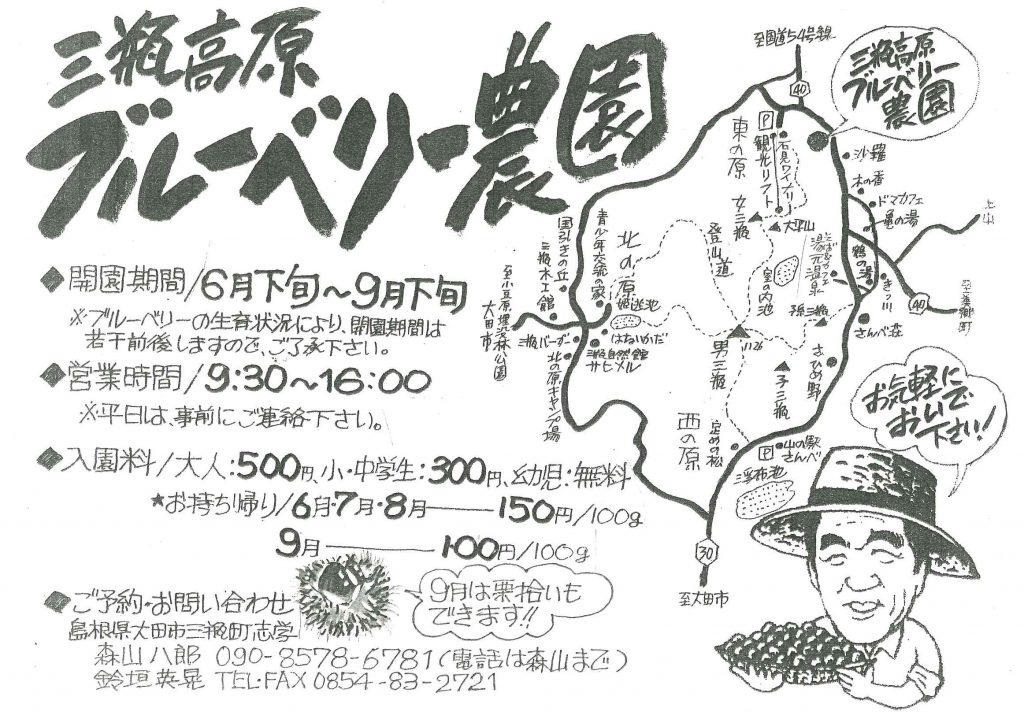 三瓶高原
ブルーベリー農園
◆開園期間/6月下旬〜9月下旬
※ブルーベリーの生育状況により、開園期間は
若干前後しますので、ご了承下さい。
◆営業時間/9:30〜16:00
※平日は、事前にご連絡下さい。
◆入園料/大人:500円、小・中学生:300円、幼児:無料
★お持ち帰り/6月・7月・8月――150円/100g
9月――100円/100g
9月は栗拾いも
できます!!
◆ご予約・お問い合わせ
島根県大田市三瓶町志学
森山八郎 090-8578-6781(電話は森山まで)
鈴垣英晃 TEL・FAX 0854-83-2721
至国道54号線
40
三瓶高原
ブルーベリー
農園
P
石見ワイナリー
観光リフト
東の原
沙羅
木の香
ドマカフェ
亀の湯
女三瓶
大平山
登山道
室の内池
湯元温泉
鶴の湯
40
至美郷町
さんべ荘
孫三瓶
国引きの丘
三瓶木工館
青少年交流の家
北の原
姫逃池
はないかだ
至小豆原埋没林公園
大田市
三瓶バーガー
三瓶自然館
サヒメル
北の原キャンプ場
男三瓶
1126
子三瓶
さひめ野
西の原
定めの松
P
山の駅
さんべ
浮布池
30
至大田市
お気軽に
おいで
下さい!